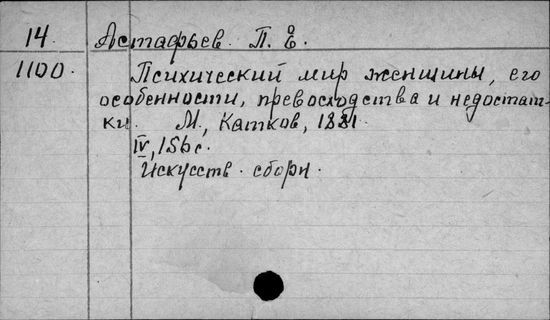 14. Астафьев. П. Е.
1100. Психический мир женщины, его
особенности, превосходства и недостат-
ки. М., Катков, 1881.
IV, 156 с.
Искусств. сборн.